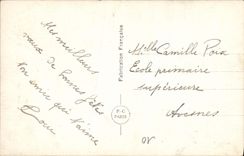 Mes meilleurs
vœux de bonnes fêtes
Ton amie qui t'aime
Fabrication Française
Mlle Camille
Ecole primaire
supérieure
Avesnes